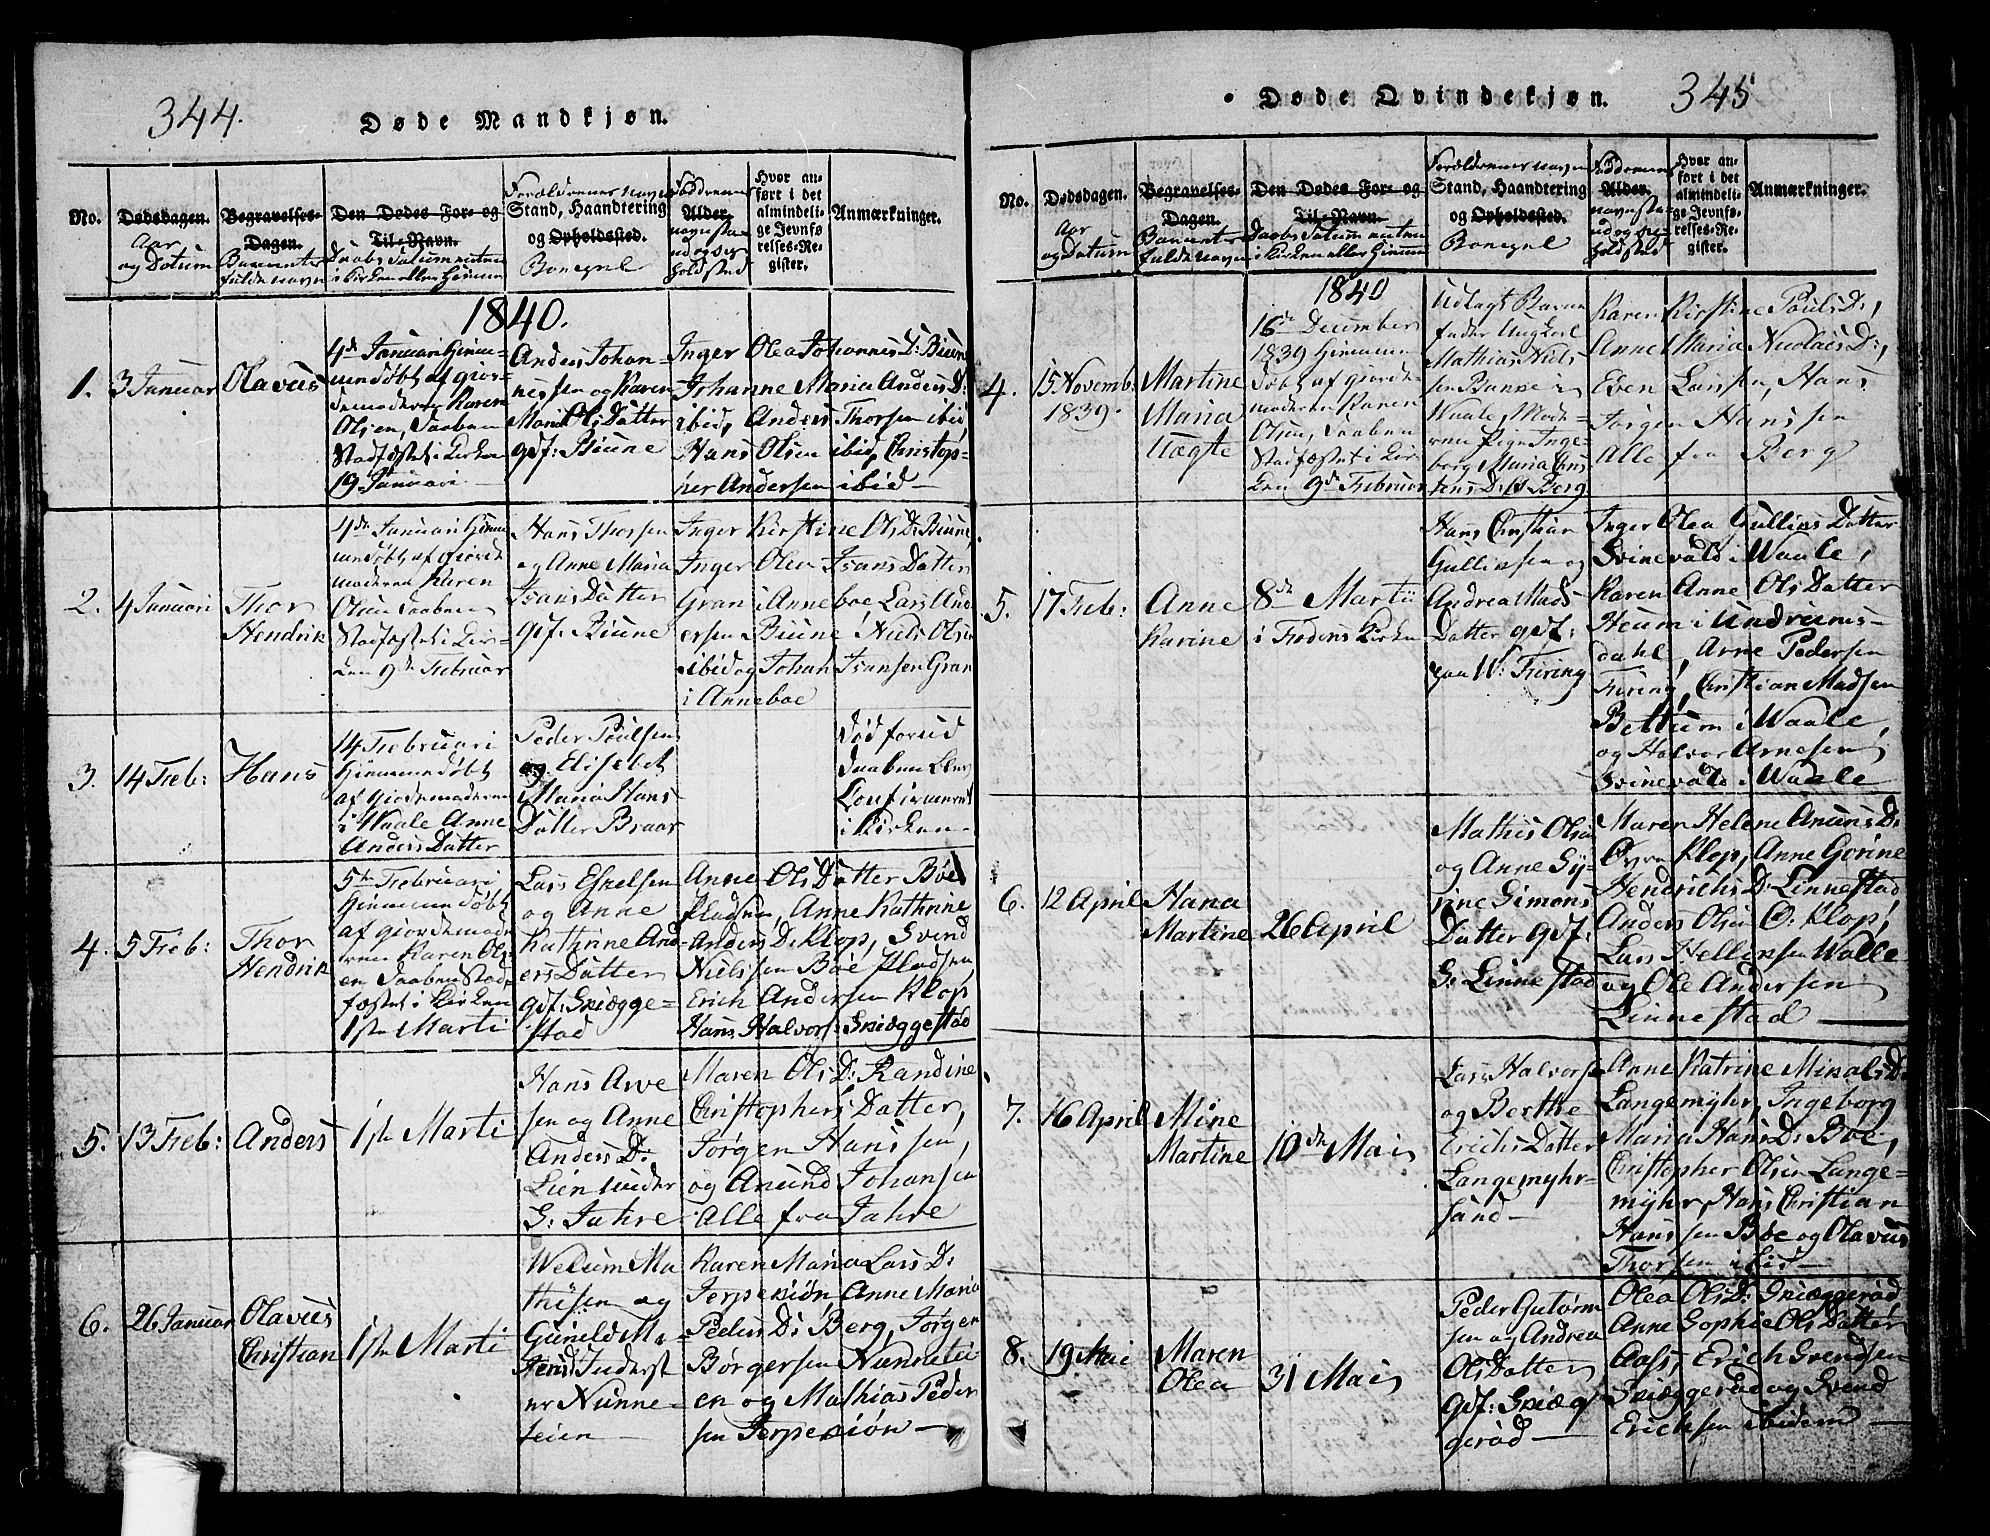 344.
Døde Mandkjøn.
No.
Dødsdagen.
Aar
og Datum
Begravelses-
Dagen.
Barnets
fulde navn
Den Dødes For- og
Til-Navn.
Daabs Datum enten
i Kirken eller Hiemme
Forældrenes navn
Stand, Haandtering
og Opholdsted.
Bonepæl
Faddernes
Alder.
navn sta-
nd og op-
holdsted
Hvor an-
ført i det
almindeli-
ge Jevnfø-
relses-Re-
gister.
Anmærkninger.
1840.
1.
3 Januar
Olavus
4de Januari Hiem-
mendøbt af gior-
demoderen Karen
Olsen, Daaben
Stadfæstet i Kirken
19 Januari
Anders Johan-
nessen og Karen
Maria Ols Datter
gdf: Biune
Inger Olea Johannes D: Biune
Johanne Maria Anders D:
ibid, Anders Thorsen ibid,
Hans Olsen ibid, Christop-
her Andersen ibid
2.
4 Januari
Thor
Hendrik
4de Januari Hiem-
mendøbt af Giorde
moderen Karen
Olsen Daaben
Stadfæstet i Kir-
ken 9de Februar
Hans Thorsen
og Anne Maria
Ivars Datter
gdf: Biune
Inger Kirstine Ols D: Biune,
Inger Olea Ivars Datter
Gran i Anneboe Lars And
ersen Biune, Niels Olsen
ibid og Johan Ivansen Gran
i Anneboe
3.
14 Feb:
Hans
14 Februari
Hiemmendøbt
af Giordemoderen
i Waale Anne
Anders Datter
Peder Poulsen
og Elisebet
Maria Hans
Datter Braar
Død forud
Daaben blev
Confirmeret
i Kirken
4.
5 Feb:
Thor
Hendrik
5te Februari
Hiemmendøbt
af giordemode
ren Karen Ols
en Daaben Stad
fæstet i Kirken
1ste Marti
Lars Eskelsen
og Anne
Kathrine And
ers Datter
gdf: Skiægge-
stad
Anne Ols Datter Bøe
Pladsen, Anne Kathrine
Anders D: Klop, Svend
Nielssen Bøe Pladsen
Erich Andersen Klop
Hans Halvors: Skiæggestad
5.
13 Feb:
Anders
1ste Marti
Hans Arve
sen og Anne
Anders D:
Lien under
S: Jahre
Maren Ols D: Randine
Christophers Datter,
Jørgen Hanssen
og Anund Johansen
Alle fra Jahre
6.
26 Januar
Olavus
Christian
1ste Marti
Welum Ma
thisen og
Gunild Ma-
Inderst
Nunne-
seien
Karen Maria Lars D:
Jerpekiøn Anne Maria
Peders D: Berg, Jørgen
Børgersen Nunnesei-
en og Mathias Peder
sen Jerpekiøn
Døde Qvindekjøn.
345
No.
Dødsdagen.
Aar
og Datum
Begravelses-
Dagen.
Barnets
fulde navn
Den Dødes For- og
Til-Navn.
Daabs Datum enten
i Kirken eller Hiemme
Forældrenes navn
Stand, Haandtering
og Opholdsted.
Bonepæl
Faddernes
Alder.
navn sta-
nd og op-
holdsted
Hvor an-
ført i det
almindeli-
ge Jevnfø-
relses-Re-
gister.
Anmærkninger.
1840
4.
15 Novemb:
1839.
Martine
Maria
Uægte
16de December
1839 Hiemmen
døbt af giorde
moderen Karen
Olsen, Daaben
Stadfæstet i Kir-
ken 9de Februar
Udlagt Barne
fader Ungkarl
Mathias Niels
sen Banne i
Waale, Mode-
ren Pige Inge-
borg Maria
Berg
Karen Kirstine Pouls D:,
Anne Maria Nicolaes D:,
Even Larssen, Hans
Jørgen Hanssen
Alle fra Berg
5.
17 Feb:
Anne
Karine
8de Marti
i Fredens Kirken
Hans Christian
Gullicsen og
Andrea Mads
Datter gdf:
paa W: Firing
Inger Olea Gullies Datter
Svinevald i Waale,
Karen Anne Ols Datter
Heum i Undrums-
dahl, Arne Pedersen
Firing, Christian Madsen
Bettum i Waale,
og Halvor Arnesen
Svinevald i Waale
6.
12 April
Hana
Martine
26 April
Mathis Olsen
og Anne Sy-
rine Simons
Datter gdf:
S: Linnestad
Maren Helene Anuns D:
Øvre Klop, Anne Gorine
Hendrichs D: Linnestad
Anders Olsen Ø: Klop,
Lars Hellissen Walle
og Ole Andersen
Linnestad
7.
16 April
Mine
Martine
10de Mai
Lars Halvors
og Berthe
Erichs Datter
Langemyhr-
sand
Anne Katrine Mikals D:
Langemyhr, Ingeborg
Maria Hans D: Boe,
Christopher Olsen Lange-
myhr, Hans Christian
Hanssen Bøe og Olavus
Thorsen ibid
8.
19 Mai
Maren
Olea
31 Mai
Peder Gutorm
sen og Andrea
Ols Datter
gdf: Skiæg
gerød
Olea Ols D: Skiæggerød
Anne Sophie Ols Datter
Aass, Erich Svendsen
Skiæggerød og Svend
Erichsen ibidem